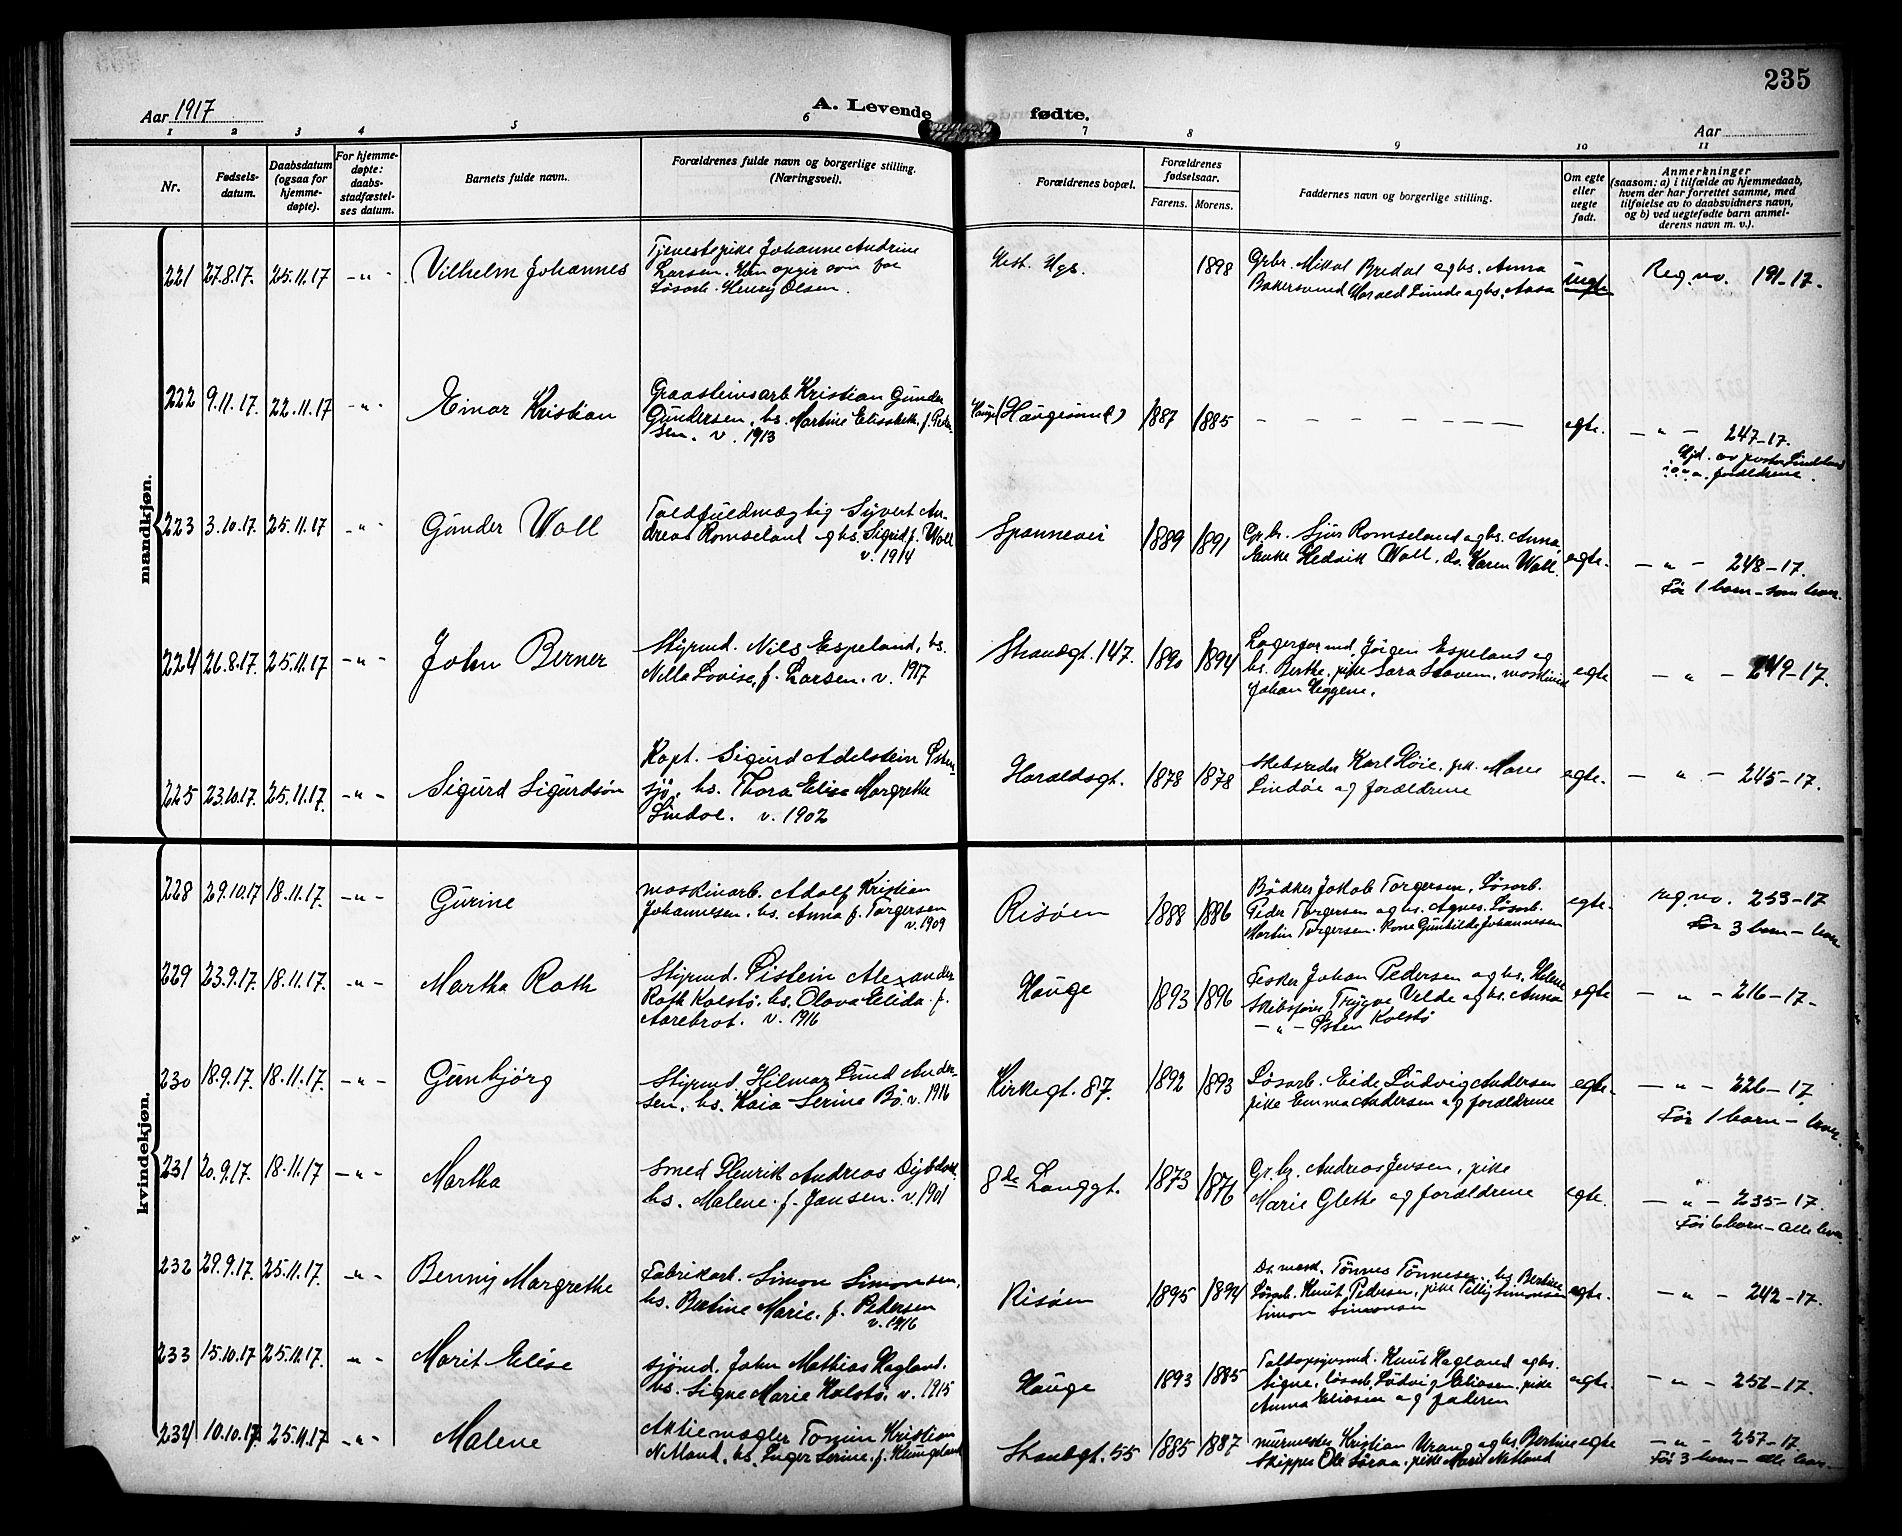 235
Aar 1917
A. Levende
fødte.
Aar
1 2 3 4 5 6 7 8 9 10 11
Nr.
Fødsels-
datum.
Daabsdatum
(ogsaa for
hjemme-
døpte).
For hjemme-
døpte:
daabs-
stadfæstel-
ses datum.
Barnets fulde navn.
Forældrenes fulde navn og borgerlige stilling.
(Næringsvei).
Forældrenes bopæl.
Forældrenes
fødselsaar.
Farens. Morens.
Faddernes navn og borgerlige stilling.
Om egte
eller
uegte
født.
Anmerkninger
(saasom: a) i tilfælde av hjemmedaab,
hvem der har forrettet samme, med
tilføielse av to daabsvidners navn,
og b) ved uegtefødte barn anmel-
derens navn m. v.).
mandkjøn.
221 27.8.17. 25.11.17 - " - Vilhelm Johannes
Tjenestepike Johanne Andrine
Larsen. Hun opgir som far
Løsarb. Henry Olsen.
Hest. Hgs. 1898
Grbr. Mikal Bredal og hs. Anna
Bakersvend Harald Lunde og hs. Aasa
uegte Reg. no. 191-17.
222 9.11.17. 22.11.17 - " - Einar Kristian
Graasteinsarb Kristian Gunder
Gundersen, hs. Martine Elisabeth, f. Peder-
sen. v. 1913
Hauge (Haugesund) 1887 1885 - - - - - - - egte.
- " - 247-17.
Hjd. av pastor Lindeland
i o. v. a. forældrene.
223 3.10.17. 25.11.17 - " - Gunder Wall
Toldfuldmægtig Syvert An-
dreas Romseland og hs. Sigrid f. Wall
v. 1914
Spannevei 1889 1891
Grbr. Sjur Romseland og hs. Anna,
Enke Hedvik Wall, do. Karen Wall.
egte. - " - 248-17.
Før 1 barn - som lever.
224 26.8.17. 25.11.17 - " - John Berner
Styrmd. Nils Espeland, hs.
Nilla Lovise, f. Larsen. v. 1917
Strandgt. 147. 1890 1894
Lagerformd, Jörgen Espeland og
hs. Berthe, pike Sara Staven, maskinist
Johan Higgene.
egte - " - 249-17.
225 23.10.17. 25.11.17. - " - Sigurd Sigurdsön
Kapt. Sigurd Adelstein Østen-
sjö, hs. Thora Elise Margrethe
Lindøe. v. 1902
Haraldsgt. 1878 1878
Skibsreder Karl Höie, frk. Marie
Lindöe og forældrene
egte. - " - 245-17.
kvindekjøn.
228 29.10.17 18.11.17. - " - Gurine
maskinarb. Adolf Kristian
Johannesen, hs. Anna f. Torgersen
v. 1909
Risöen 1888 1886
Bödker Jakob Torgersen, Løsarb.
Peder Torgersen og hs. Agnes. Løsarb.
Martin Torgersen. Kone Gunhilde Johannesen
egte. reg. no. 253-17
Før 3 barn - lever
229 23.9.17. 18.11.17. - " - Martha Roth
Styrmd. Öistein Alexander
Roth Kolstö. hs. Olava Elida f.
Aarebrot. v. 1916
Hauge 1893 1896
Fisker Johan Pedersen og hs. Helene
Skibsfører Trygve Velde og hs. Anna
- " - Østen Kolstö
egte - " - 216-17.
230 18.9.17. 18.11.17. - " - Gunbjörg
Styrmd. Hilmar Lund Ander-
sen, hs. Kaia Serine Bö. v. 1916
Kirkegt. 87. 1892 1893
Løsarb. Eide, Ludvig Andersen
pike Emma Andersen og forældrene
egte. - " - 226-17
Før 1 barn - lever.
231 20.9.17. 18.11.17 - " - Martha
Smed Henrik Andreas Dybdahl
hs. Malene. f. Jansen. v. 1901
8de Langgt. 1873 1876
Gr. br. Andreas Jensen, pike
Marie Glette og forældrene
egte. - " - 235-17.
Før 6 barn - alle lever
232 29.9.17. 25.11.17. - " - Benny Margrethe
Fabrikarb. Simon Simonsen,
hs. Bertine Marie. f. Pedersen
v. 1916
Risöen 1895 1894
Tönnes Tönnesen, hs. Bertine
Løsarb. Knut Pedersen, pike Tilly Simonsen
Simon Simonsen
egte. - " - 242-17.
233 15.10.17 25.11.17. - " - Marit Elise
sjömd. John Mathias Hagland.
hs. Signe Marie Kolstö. v. 1915
Hauge 1893 1885
Toldopsynsmd. Knut Hagland og hs.
Signe, løsarb. Ludvig Eliasen, pike
Anna Eliasen og faderen
egte. - " - 256-17.
234 10.10.17. 25.11.17 - " - Malene
Aktiemægler Tomin Kristian
Netland, hs. Inger Serine f. Klungeland
Strandgt. 55 1885 1887
murmester Kristian Vrang og hs. Bertine
Skipper Ole Söraa, pike Marit Netland
egte - " - 257-17
Før 3 barn - alle lever.